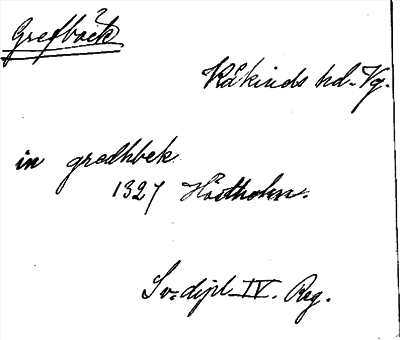 Grefbäck
Kåkinds hd. Vg.
in grodhbek
1327 Höstholm.
Sv. dipl. IV. Reg.